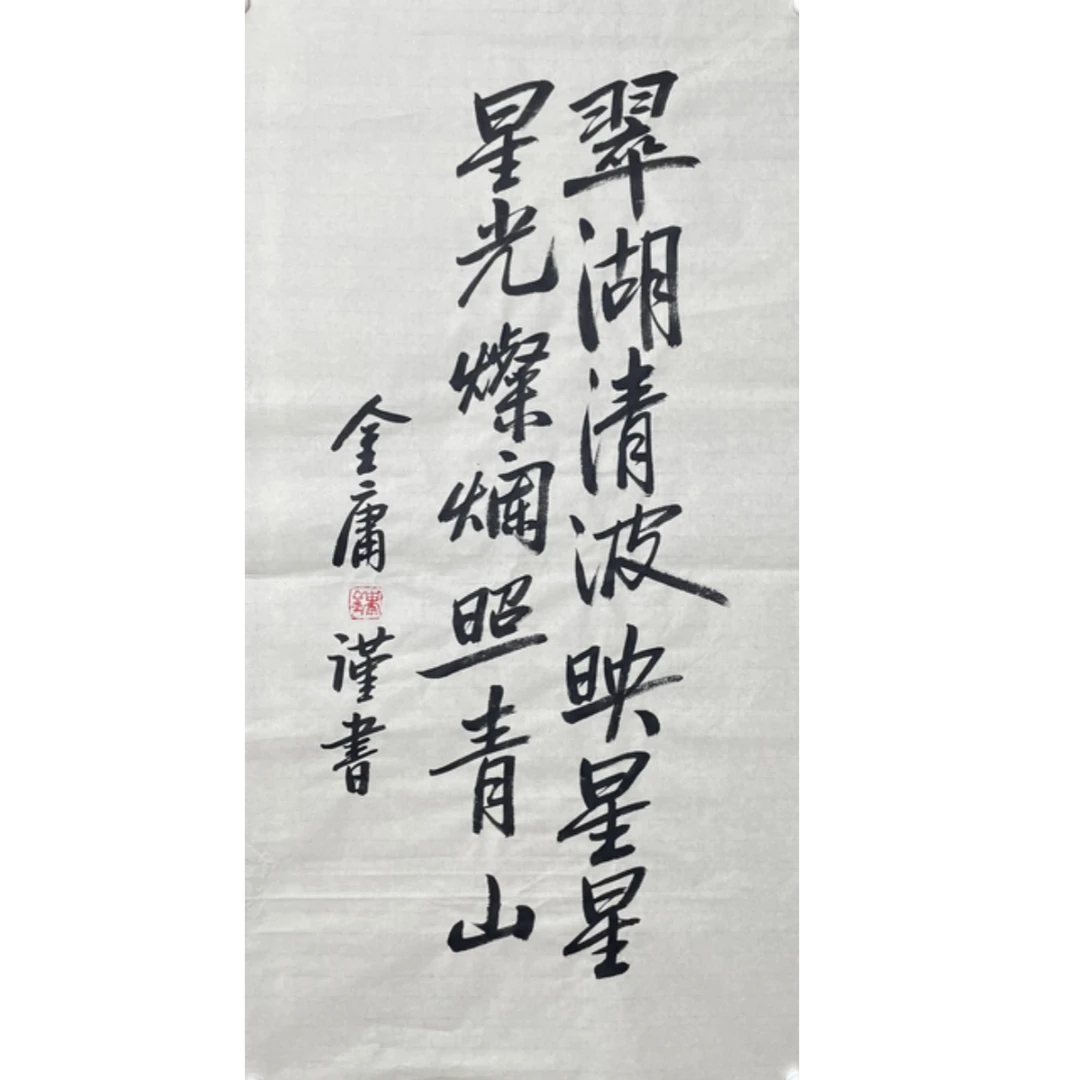 翠湖清波映星星
星光燦爛照青山
金庸
謹書